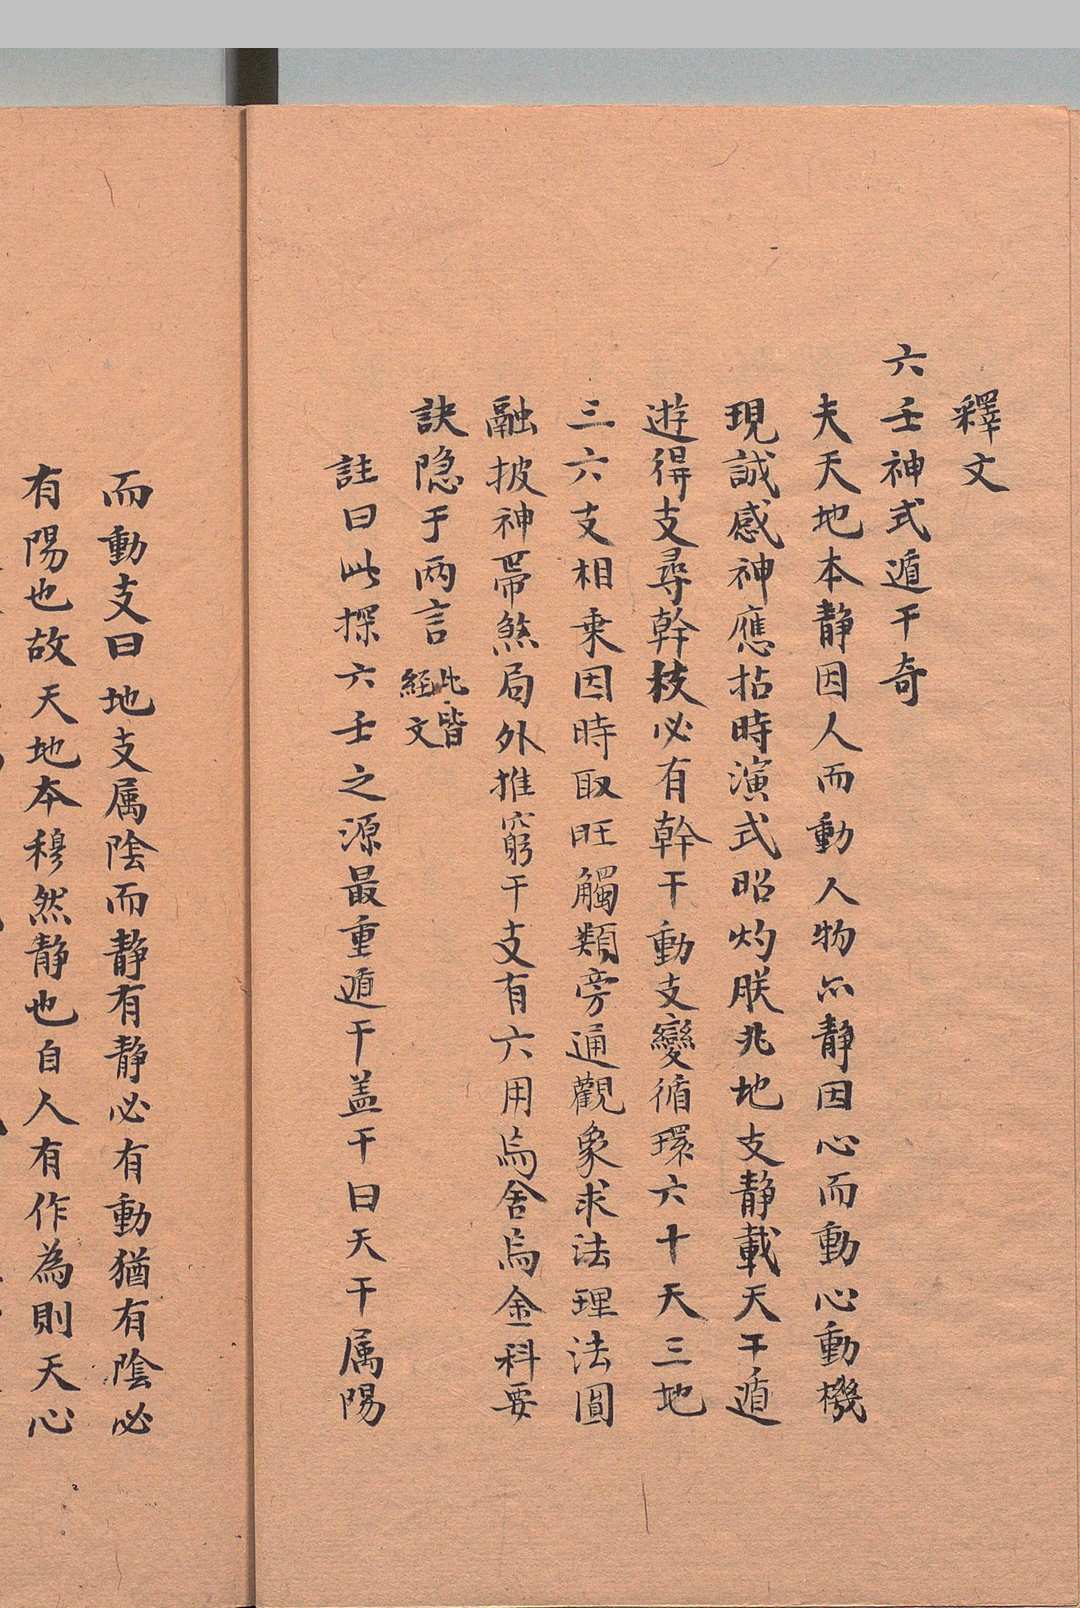 釋文
六壬神式遁干奇
夫天地本静因人而動人物亦静因心而動心動機
現誠感神應拈時演式昭灼朕兆地支静載天干遁
遊得支尋幹枝必有幹干動支變循環六十天三地
三六支相乗因時取旺觸類旁通觀象求法理法圓
融披神帶煞局外推窮干支有六用焉舍焉金科要
訣隐于两言
此皆
經文
註曰此探六壬之源最重遁干盖干曰天干属陽
而動支曰地支属陰而静有静必有動猶有陰必
有陽也故天地本穆然静也自人有作為則天心